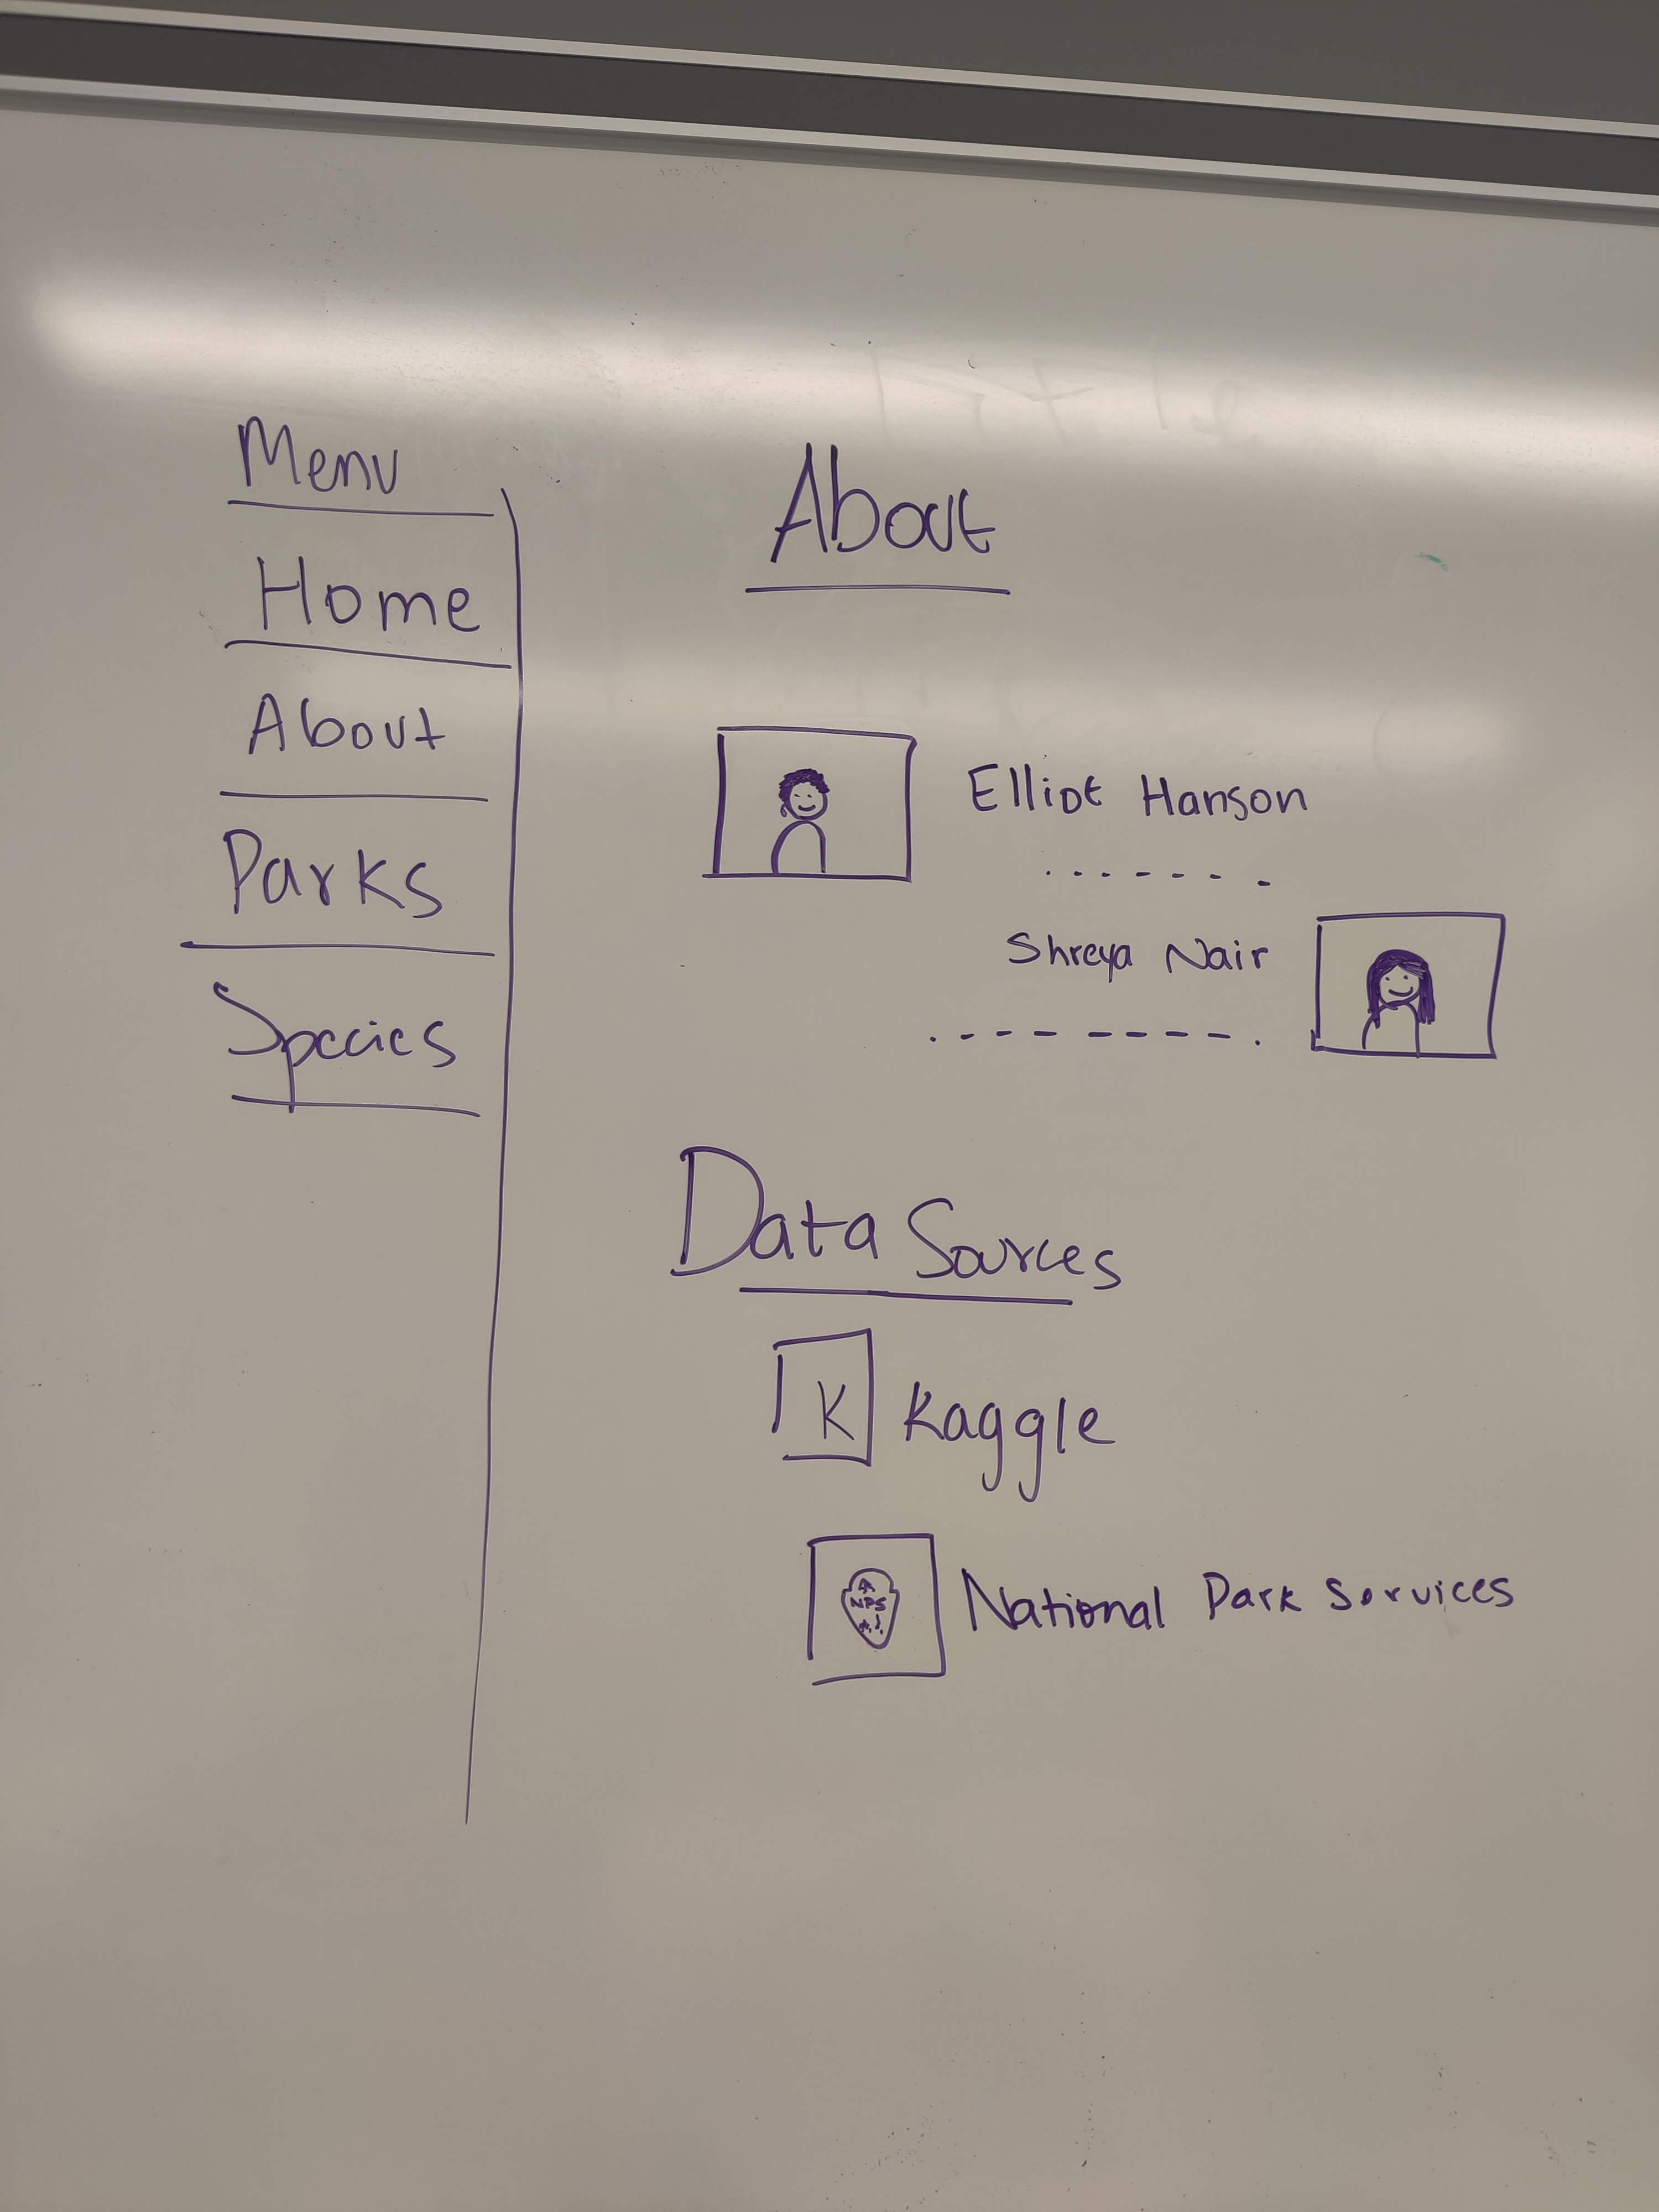 Menu
Home
About
Parks
Species
About
Elliot Hanson
Shreya Nair
Data Sources
K Kaggle
NPS
National Park Services